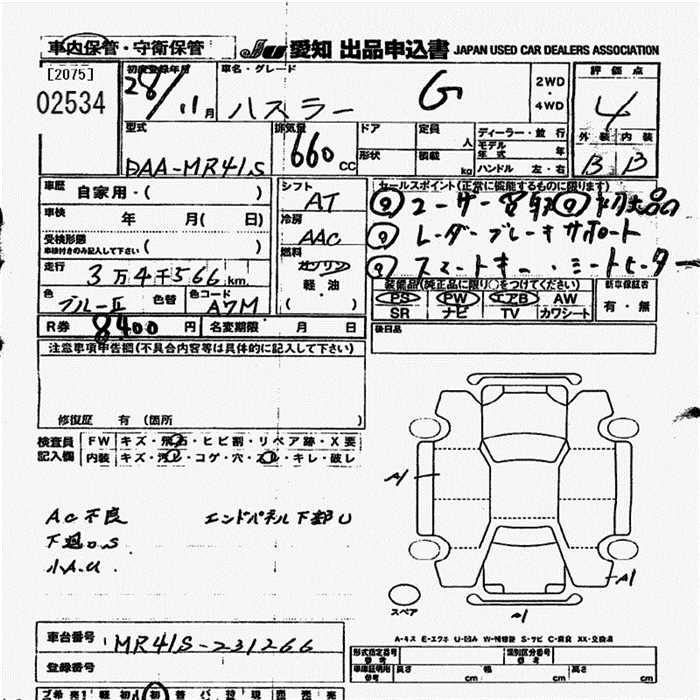 車内保管・守衛保管
JU 愛知 出品申込書 JAPAN USED CAR DEALERS ASSOCIATION
[2075]
02534
初度登録年月
28/11月
車名・グレード
ハスラー G
2WD
・
4WD
評価点
4
外装 内装
B B
型式
DAA-MR41S
排気量
660 CC
ドア
形状
定員 人
積載 kg
ディーラー・並行
モデル年式 年
ハンドル 左・右
車歴 自家用・( )
車検 年 月( 日)
受検形態
車検付きのみ記入して下さい ( )
走行 3万4千566km
色 ブルーII 色替 色コード A7M
シフト AT
冷房 AAC
燃料 ガソリン
軽・油
セールスポイント(正常に機能するものに限ります)
レーダーブレーキサポート
スマートキー・シートヒーター
装備品(純正品に限り○をつけてください)
PS PW エアB AW
SR ナビ TV カワシート
新車保証書
有・無
R券 8400円 名変期限 月 日
後日品
注意事項申告欄(不具合内容等は具体的に記入して下さい)
修復歴 有 (箇所
検査員記入欄
FW キズ・飛石・ヒビ割・リペア跡・X要
内装 キズ・汚レ・コゲ・穴・スレ・キレ・破レ
AC不良 エンドパネル下部U
下廻り.S
小A.U
A1
A1
A1
スペア
A-キズ E-エクボ U-凹み W-補修跡 S-サビ C-腐食 XX-交換済
車台番号 MR41S-231266
登録番号
形式指定番号
参考
類別区分番号
参考
車庫証明用
参考
長さ cm 幅 cm 高さ cm